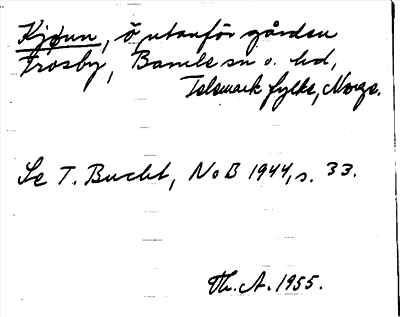 Kjøun, ö utanför gården
Trosby, Bamle sn o. hd,
Telemark fylke, Norge.
Se T. Bucht, NoB 1944, s. 33.
Th. A. 1955.